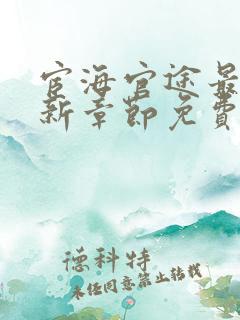 宦海官途最
新章節免費
德科特
未经同意禁止转载